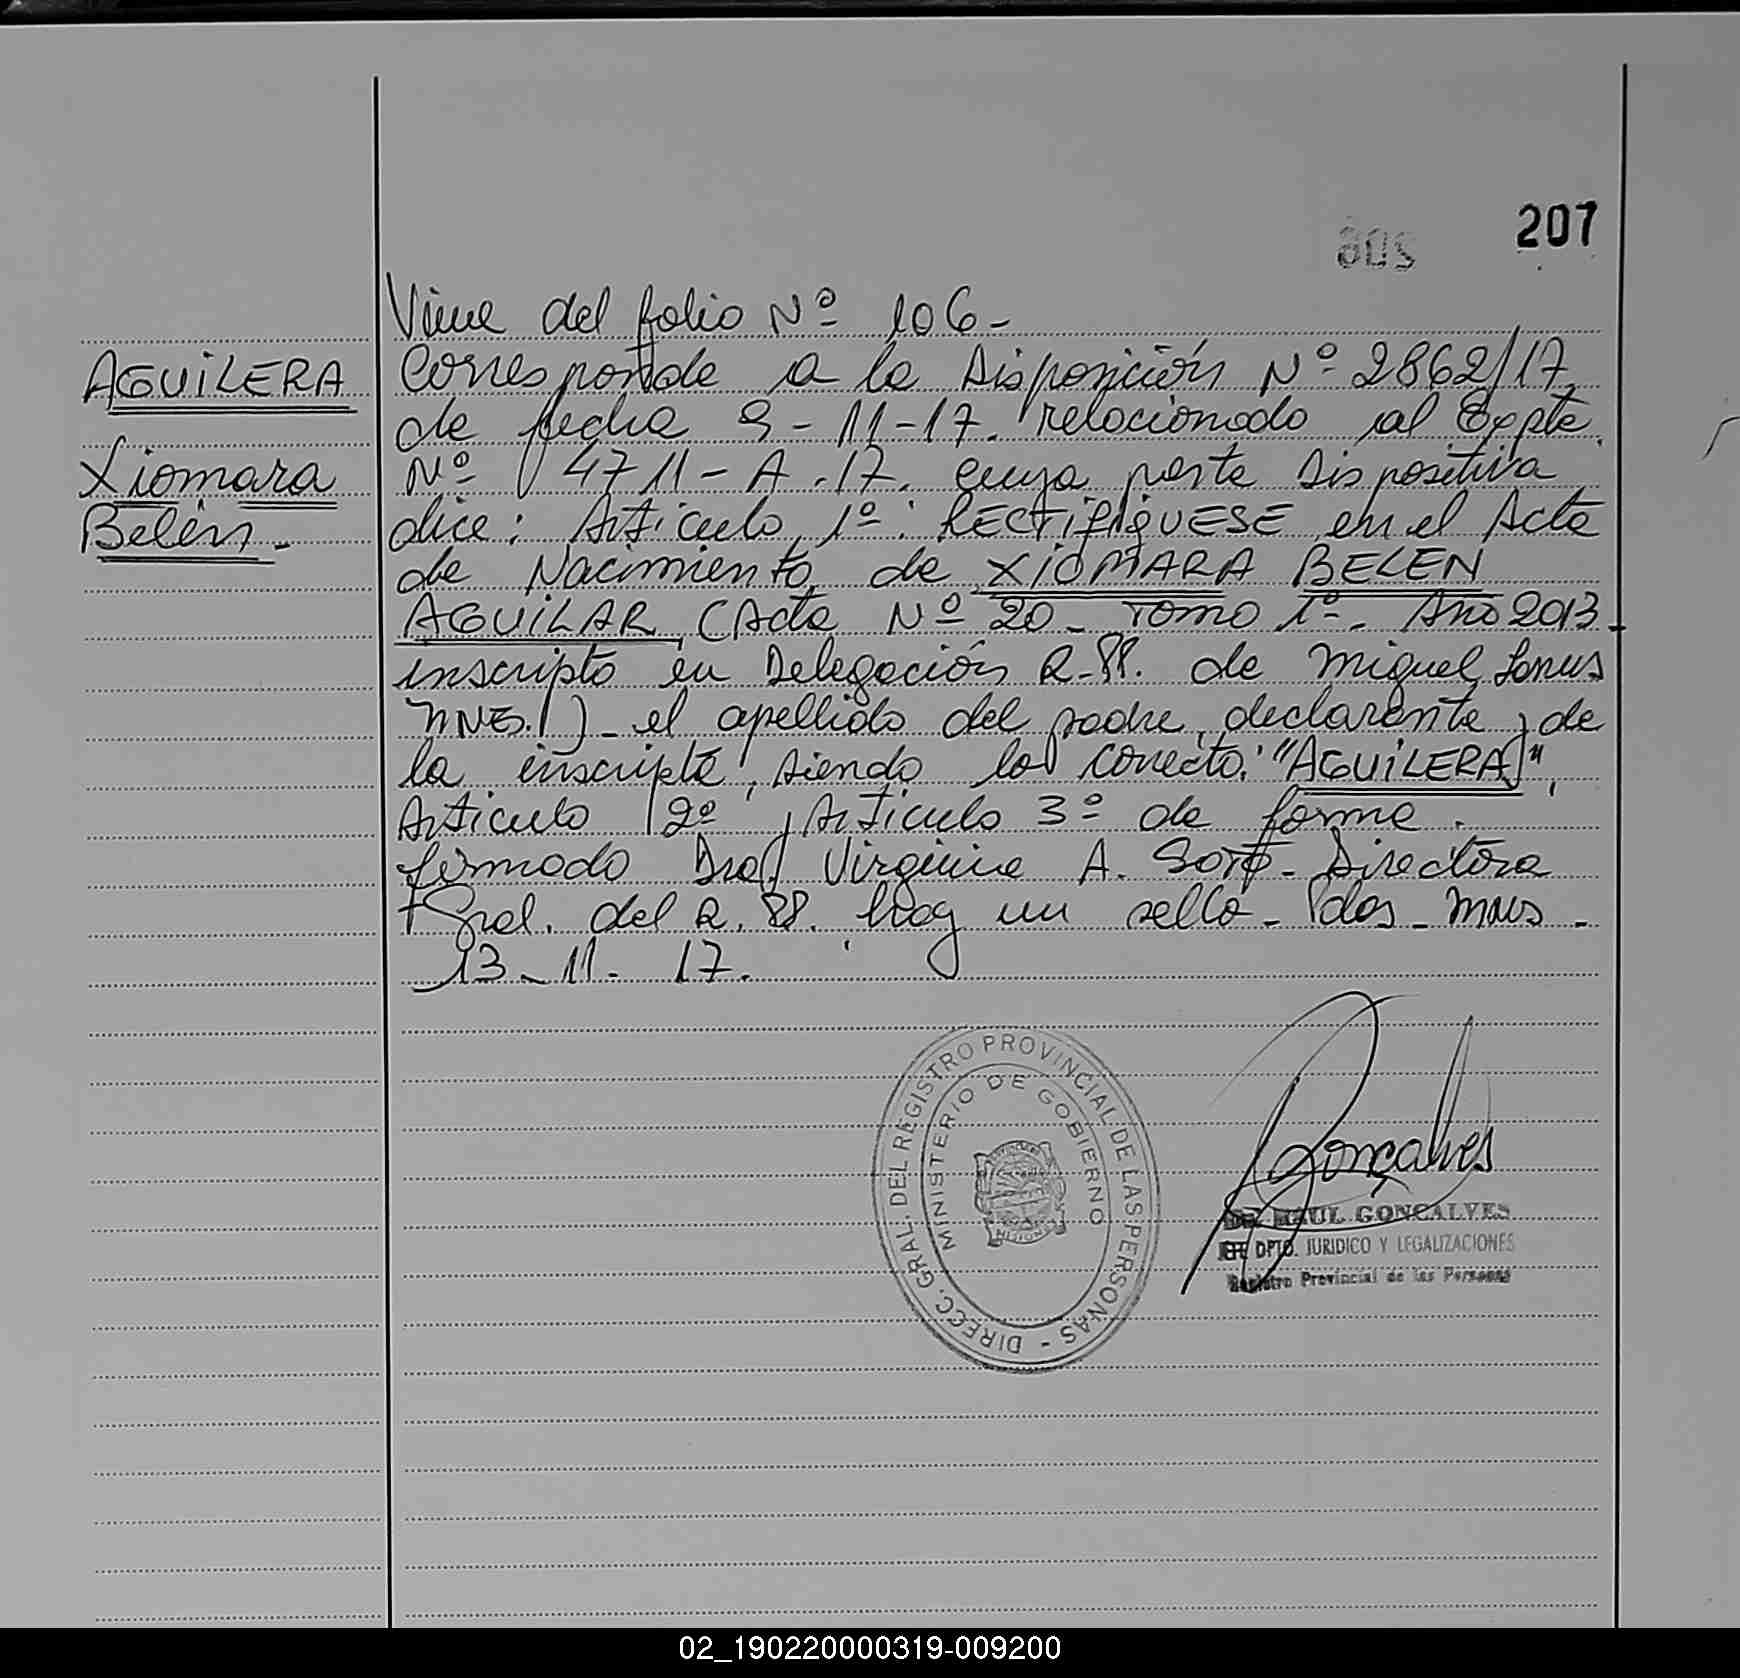 207
Viene del folio Nº 106-
AGUILERA
Xiomara
Belén.-
Corresponde a la Disposición Nº 2862/17
de fecha 9-11-17. relacionado al Expte.
Nº 4711-A-17. cuya parte dispositiva
dice: Artículo 1º: RECTIFIQUESE en el Acta
de Nacimiento de XIOMARA BELEN
AGUILAR (Acta Nº 20 - Tomo 1º - Año 2013
inscripta en Delegación R. de Miguel
MNES.) - el apellido del padre, declarante, de
la inscripta, siendo lo correcto: "AGUILERA",
Artículo 2º, Artículo 3º de forma.
firmado Dra Virginia A. Soto - Directora
Gral. del R. hay un sello -
13-11-17.
DIRECC. GRAL. DEL REGISTRO PROVINCIAL DE LAS PERSONAS -
MINISTERIO DE GOBIERNO
MISIONES
Gonçalves
RAUL GONCALVES
DPTO. JURIDICO Y LEGALIZACIONES
Registro Provincial de las Personas
02_190220000319-009200